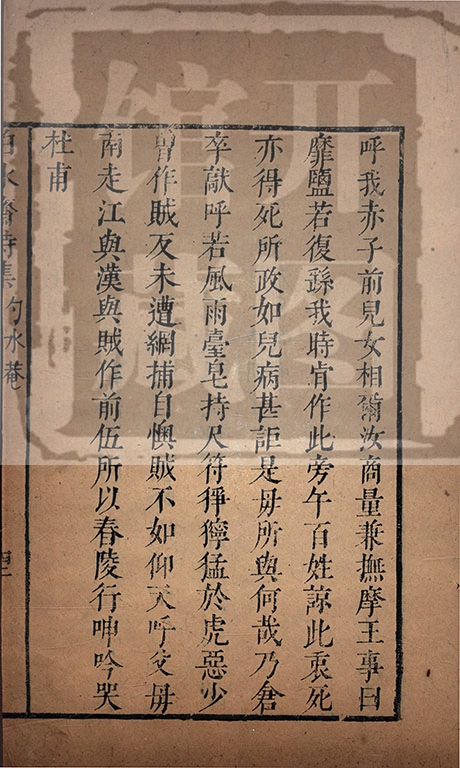 呼我赤子前兒女相爾汝商量兼撫摩王事曰
靡盬若復繇我時肯作此旁午百姓諒此衷死
亦得死所政如兒病甚詎是毋所與何哉乃倉
卒獻呼若風雨臺皂持尺符猙獰猛於虎惡少
曾作賊反未遭網捕自懊賊不如仰天呼父毋
南走江與漢與賊作前伍所以春陵行呻吟哭
杜甫
白水齋詩集 勺水菴